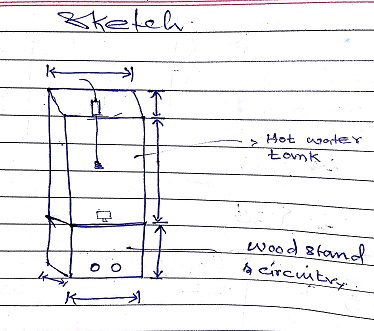 Sketch.
Hot water
tank
wood stand
& circuitry